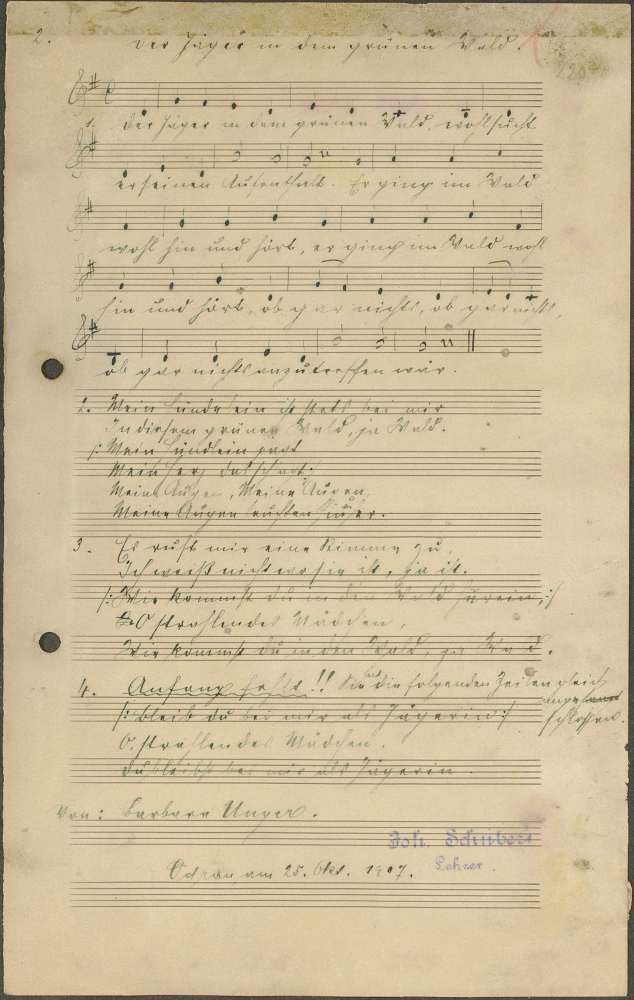 2. Der Jäger in dem grünen Wald.
220
1. Der Jäger in dem grünen Wald, wohl sucht
er seinen Aufenthalt. Er ging im Wald
wohl hin und hört, er ging im Wald wohl
hin und hört, ob gar nichts, ob gar nichts,
ob gar nichts anzutreffen wär.
2. Mein Hündelein ist stets bei mir
In diesem grünen Wald, ja Wald.
/: Mein Hündlein jagt
Mein Herz das schagt :/
Meine Augen, Meine Augen,
Meine Augen leuchten hin u. her.
3. Es ruft mir eine Stimme zu,
Ich weiß nicht wo sie ist, ja ist.
/: Wie kommst du in den Wald herein, :/
O strahlendes Mädchen,
Wie kommst du in den Wald, ja Wald.
4. Anfang fehlt!! die folgenden Zeilen gleich
/: Bleib du bei mir als Jägerin :/ schlossen.
O, strahlendes Mädchen.
du bleibst bei mir als Jägerin.
Von: Barbara Unger.
Joh. Schubert
Lehrer.
am 25. Okt. 1907.